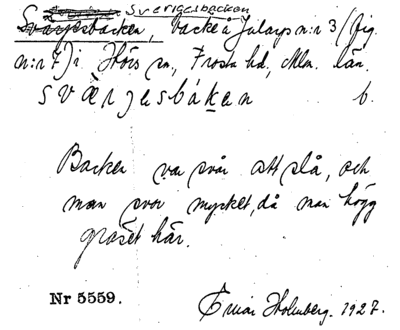 Sverigesbacken
Svärjesbacken, backe å Jularp n:r 3 (fig.
n:r 7) i Hörs sn, Frosta hd, Mlm. län.
sværjesbákan b.
Backen var svår att slå, och
man svor mycket, då man högg
gräset här.
Nr 5559.
Einar Holmberg. 1927.